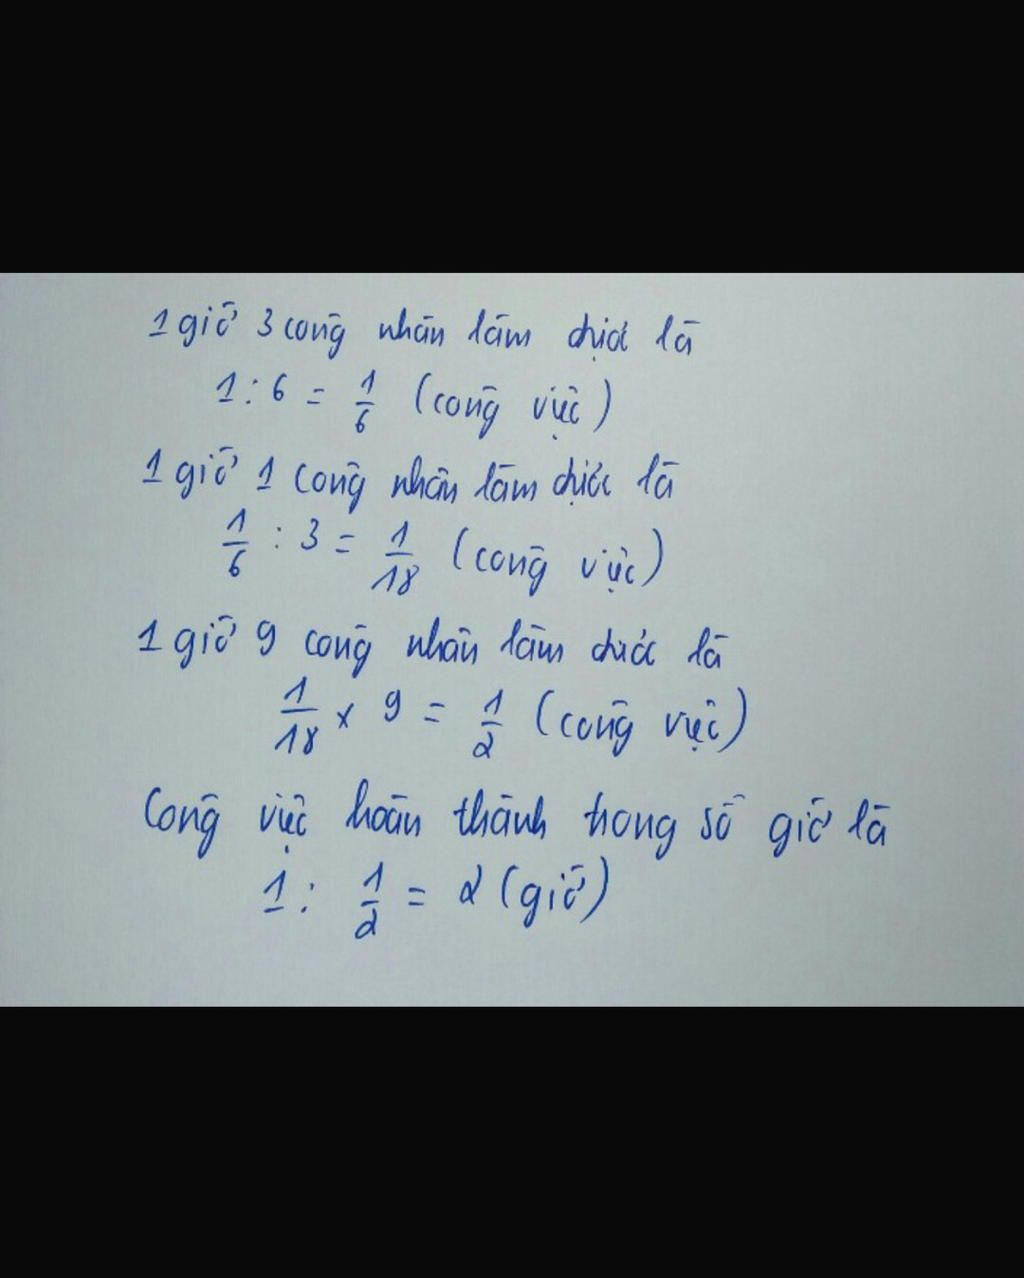 1 giờ 3 công nhân làm được là
1 : 6 = 1/6 (công việc)
1 giờ 1 công nhân làm được là
1/6 : 3 = 1/18 (công việc)
1 giờ 9 công nhân làm được là
1/18 x 9 = 1/2 (công việc)
Công việc hoàn thành trong số giờ là
1 : 1/2 = 2 (giờ)